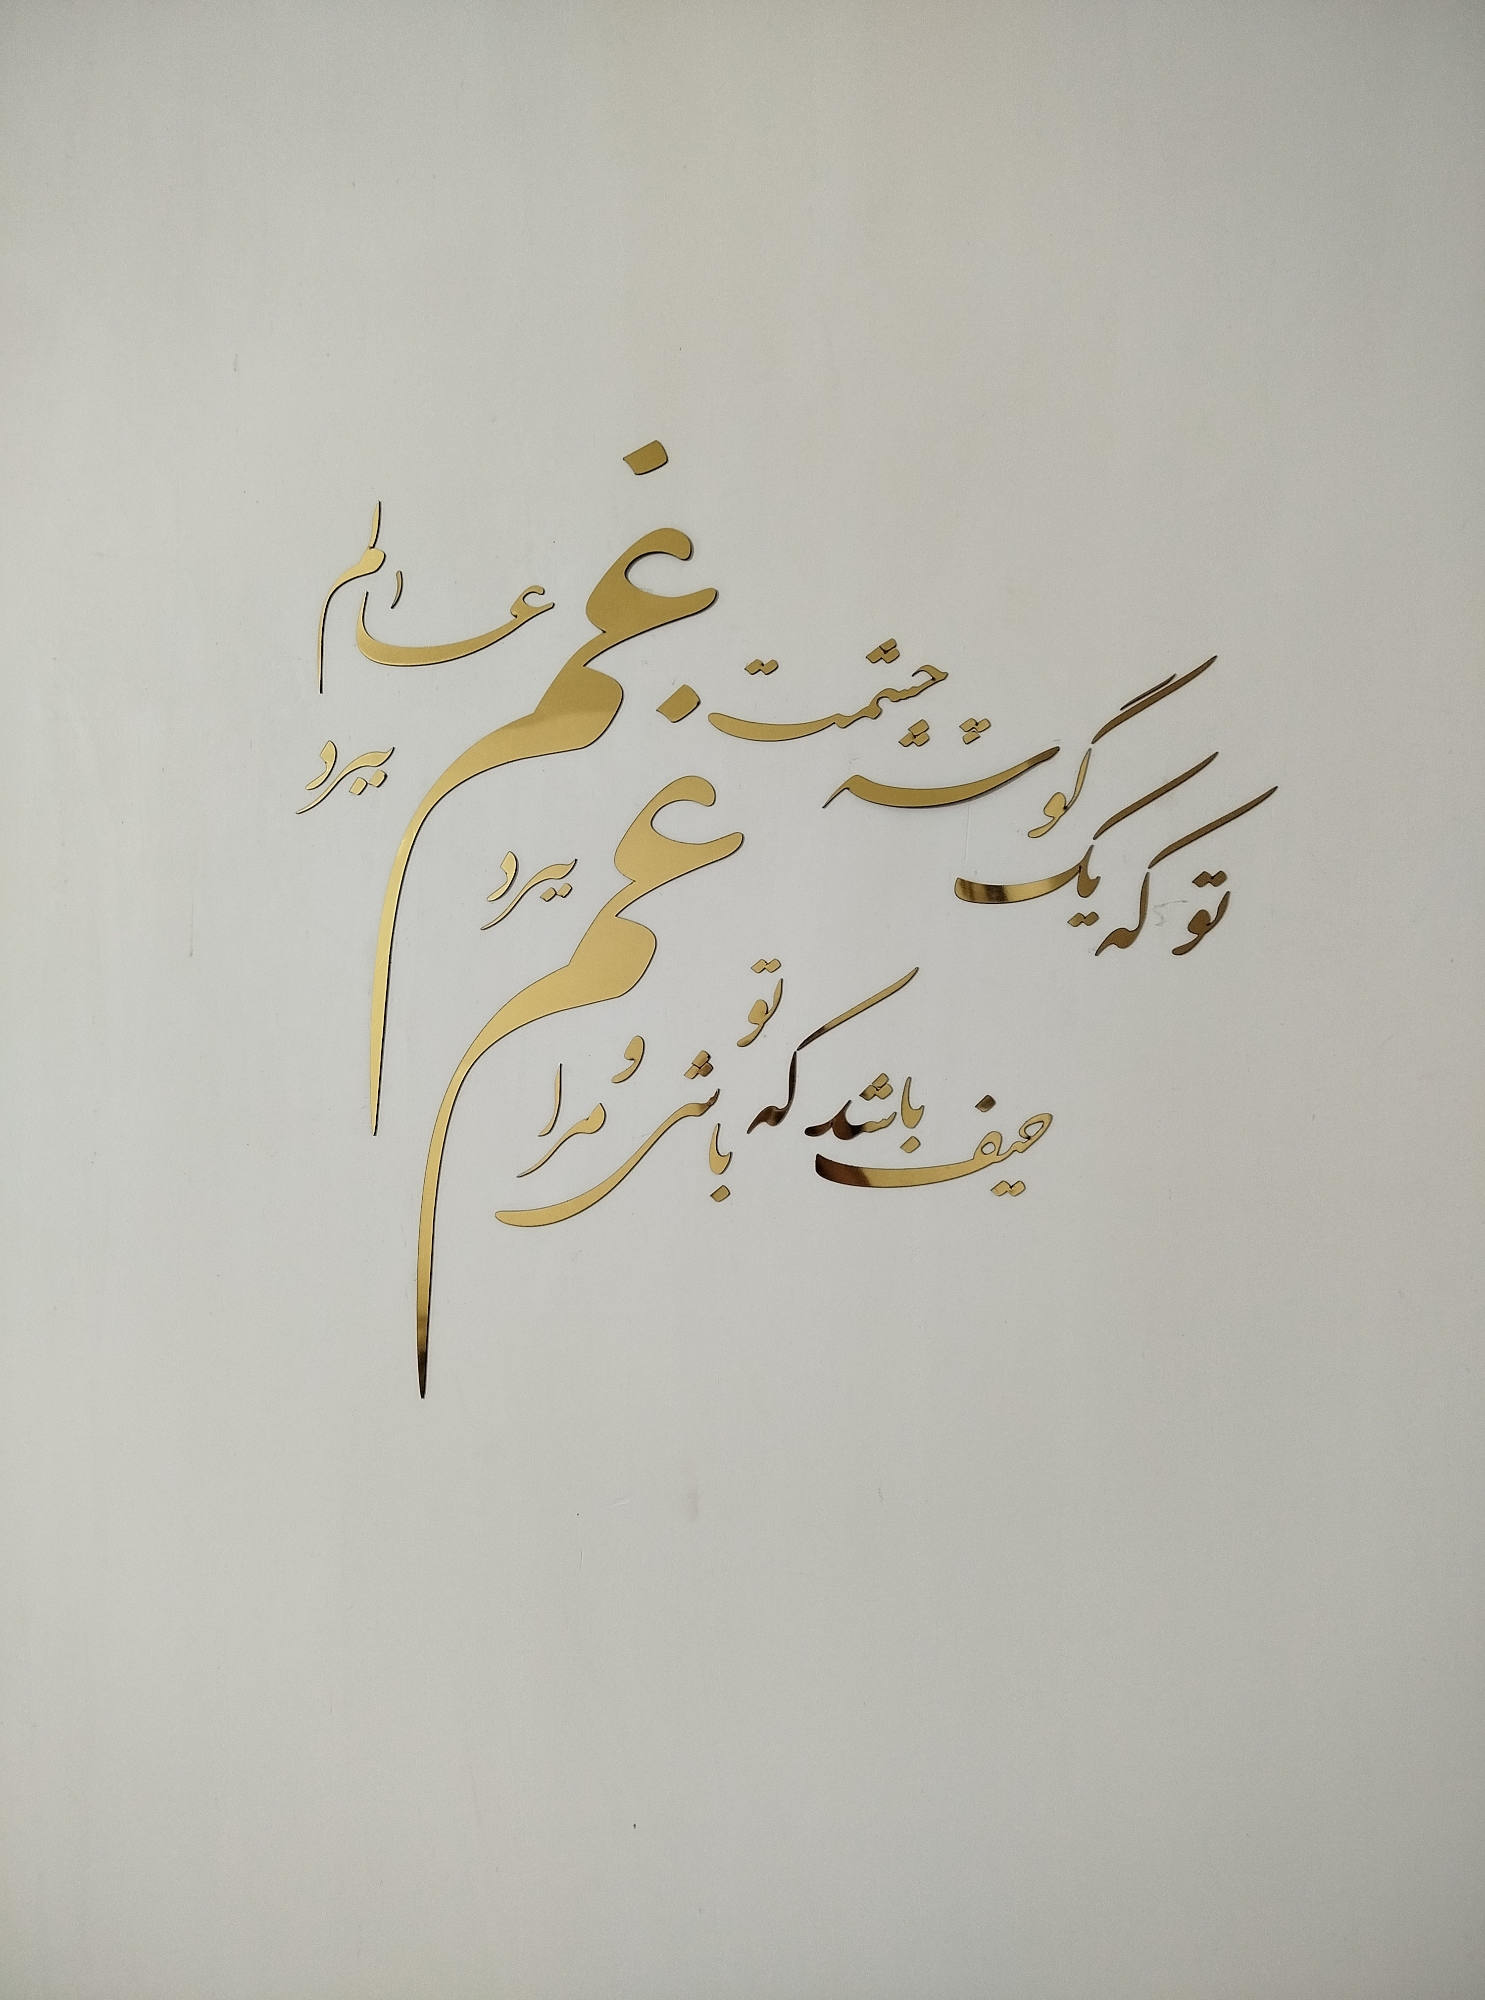 تو که یک گوشه چشمت غم عالم ببرد
حیف باشد که تو باشی و مرا غم ببرد